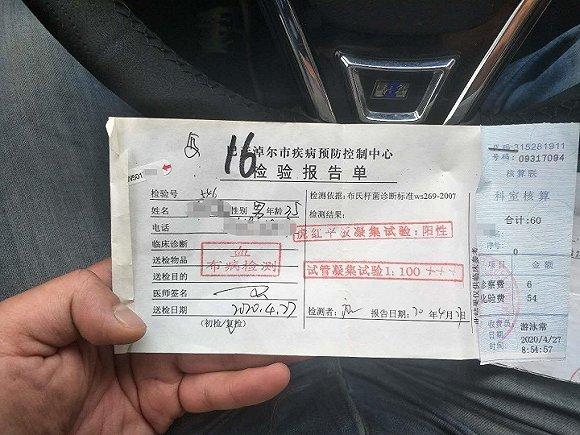 16
淖尔市疾病预防控制中心
检验报告单
检验号
姓名 性别 男 年龄 35
电话
临床诊断
送检物品
送检目的
医师签名
送检日期 2020.4.27
(初检/复检)
血
布病检测
检测依据:布氏杆菌诊断标准ws269-2007
检测结果:
虎红平板凝集试验:阳性
试管凝集试验1:100+++
检测者: 报告日期:20年4月
315281911
号码:09317094
核算联
科室核算
合计:60
项目 金额
诊察费 6
化验费 54
收费员 游泳常
日期 2020/4/27
时间 8:54:57